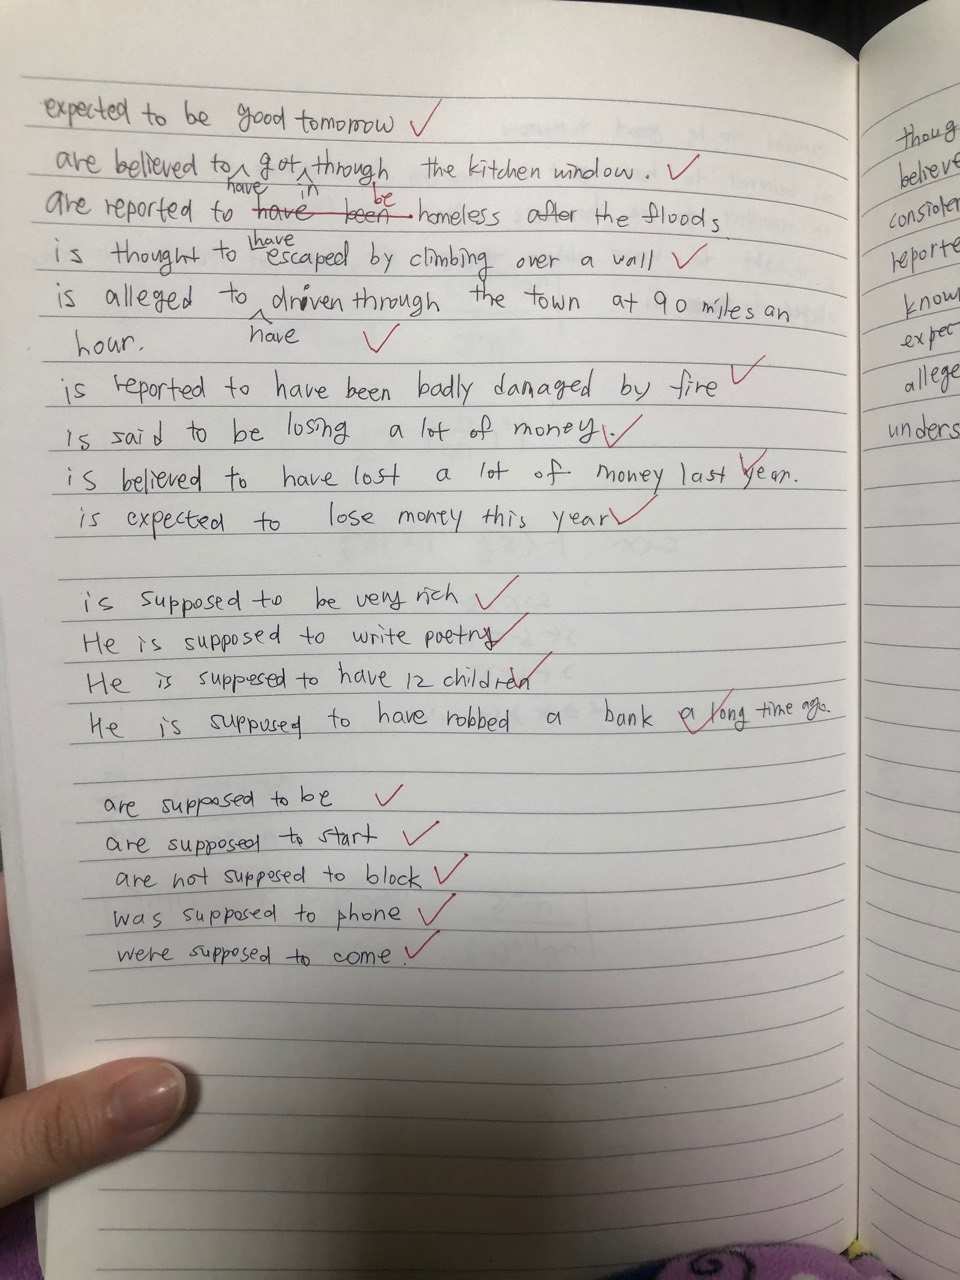 expected to be good tomorrow
are believed to have got in through the kitchen window.
are reported to have been be homeless after the floods
is thought to have escaped by climbing over a wall
is alleged to have driven through the town at 90 miles an
hour.
is reported to have been badly damaged by fire
is said to be losing a lot of money.
is believed to have lost a lot of money last year.
is expected to lose money this year
is supposed to be very rich
He is supposed to write poetry
He is supposed to have 12 children
He is supposed to have robbed a bank a long time ago.
are supposed to be
are supposed to start
are not supposed to block
was supposed to phone
were supposed to come.
thoug
believe
consider
reporte
know
expec
allege
unders